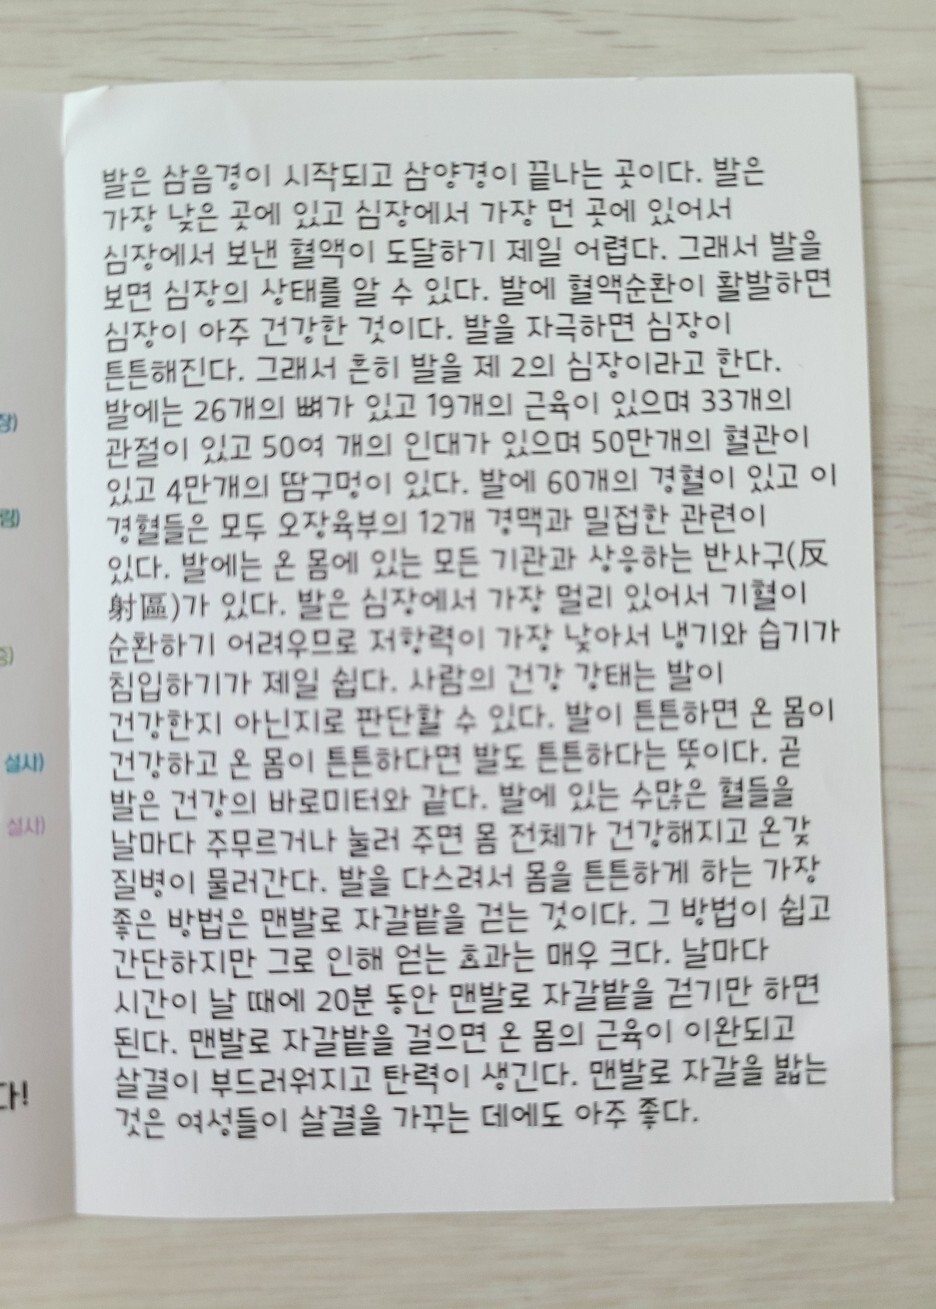 발은 삼음경이 시작되고 삼양경이 끝나는 곳이다. 발은
가장 낮은 곳에 있고 심장에서 가장 먼 곳에 있어서
심장에서 보낸 혈액이 도달하기 제일 어렵다. 그래서 발을
보면 심장의 상태를 알 수 있다. 발에 혈액순환이 활발하면
심장이 아주 건강한 것이다. 발을 자극하면 심장이
튼튼해진다. 그래서 흔히 발을 제 2의 심장이라고 한다.
발에는 26개의 뼈가 있고 19개의 근육이 있으며 33개의
관절이 있고 50여 개의 인대가 있으며 50만개의 혈관이
있고 4만개의 땀구멍이 있다. 발에 60개의 경혈이 있고 이
경혈들은 모두 오장육부의 12개 경맥과 밀접한 관련이
있다. 발에는 온 몸에 있는 모든 기관과 상응하는 반사구(反
射區)가 있다. 발은 심장에서 가장 멀리 있어서 기혈이
순환하기 어려우므로 저항력이 가장 낮아서 냉기와 습기가
침입하기가 제일 쉽다. 사람의 건강 강태는 발이
건강한지 아닌지로 판단할 수 있다. 발이 튼튼하면 온 몸이
건강하고 온 몸이 튼튼하다면 발도 튼튼하다는 뜻이다. 곧
발은 건강의 바로미터와 같다. 발에 있는 수많은 혈들을
날마다 주무르거나 눌러 주면 몸 전체가 건강해지고 온갖
질병이 물러간다. 발을 다스려서 몸을 튼튼하게 하는 가장
좋은 방법은 맨발로 자갈밭을 걷는 것이다. 그 방법이 쉽고
간단하지만 그로 인해 얻는 효과는 매우 크다. 날마다
시간이 날 때에 20분 동안 맨발로 자갈밭을 걷기만 하면
된다. 맨발로 자갈밭을 걸으면 온 몸의 근육이 이완되고
살결이 부드러워지고 탄력이 생긴다. 맨발로 자갈을 밟는
것은 여성들이 살결을 가꾸는 데에도 아주 좋다.
장)
설사)
설사)
다!